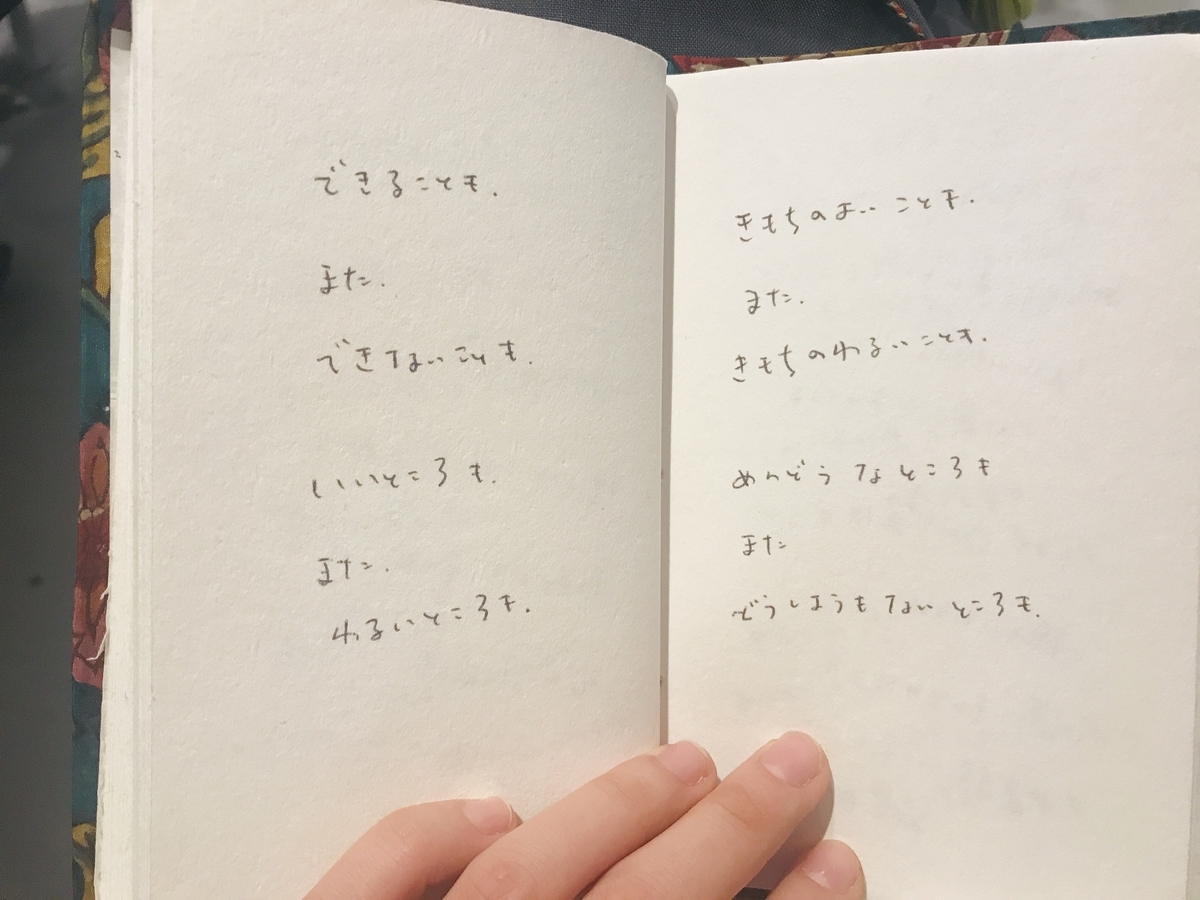 できることも.
また.
できないことも.
いいところも.
また.
わるいところも.
きもちのよいことも.
また.
きもちのわるいことも.
めんどうなところも
また
どうしようもないところも.